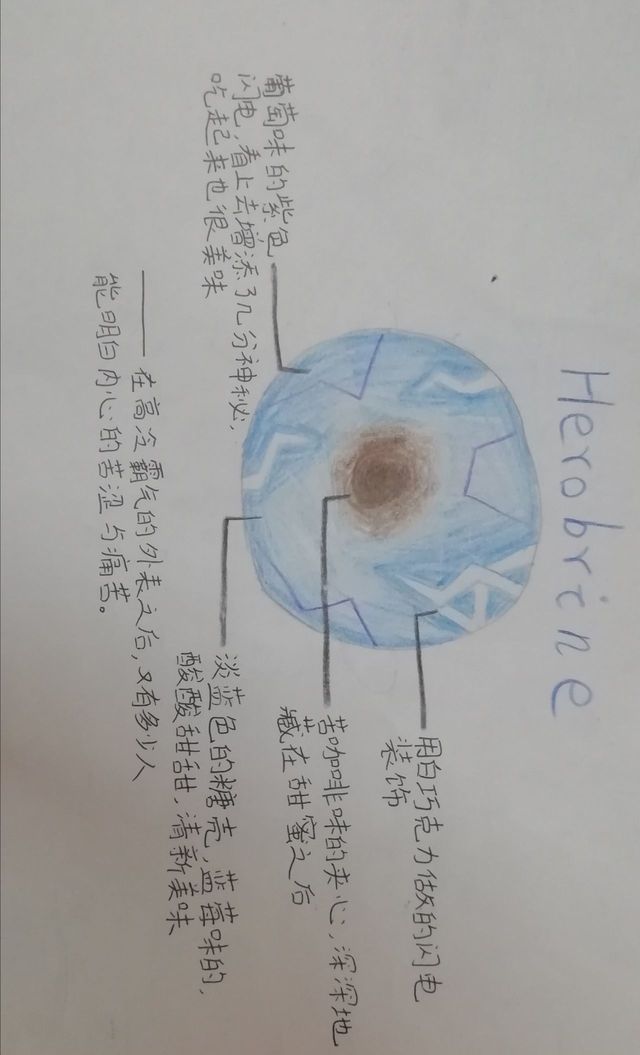 Herobrine
葡萄味的紫色
闪电，看上去增添了几分神秘，
吃起来也很美味
用白巧克力做的闪电
装饰
苦咖啡味的夹心，深深地
藏在甜蜜之后
淡蓝色的糖壳，蓝莓味的，
酸酸甜甜，清新美味
——在高冷霸气的外表之后，又有多少人
能明白内心的苦涩与痛苦。